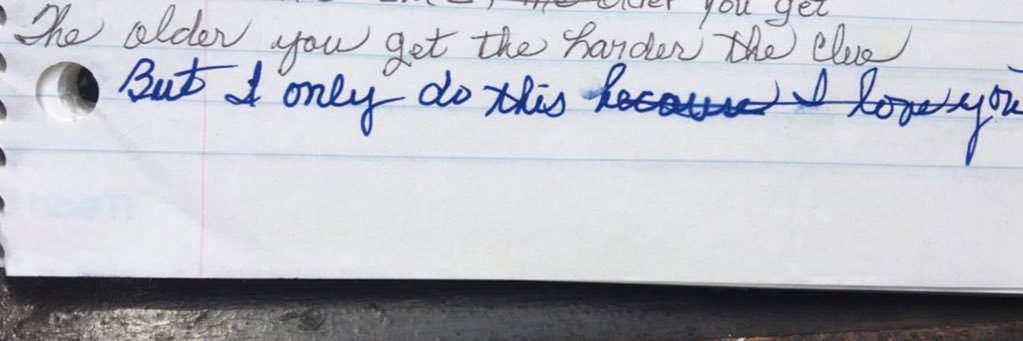 older you get
The older you get the harder the clue
But I only do this because I love you